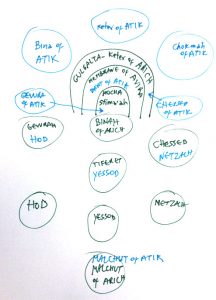 Keter of ATIK
Bina of
ATIK
Chokmah
of ATIK
GULGALTA - Keter of ARICH
MEMBRANE of AVIRA
DAAT of ATIK
HOCHA
Stimaah
GEVURA
of ATIK
CHESSED
of ATIK
BINAH
of ARICH
GEVURAH
HOD
CHESSED
NETZACH
TIFERET
YESSOD
HOD
NETZACH
YESSOD
MALCHUT of ATIK
MALCHUT
of ARICH